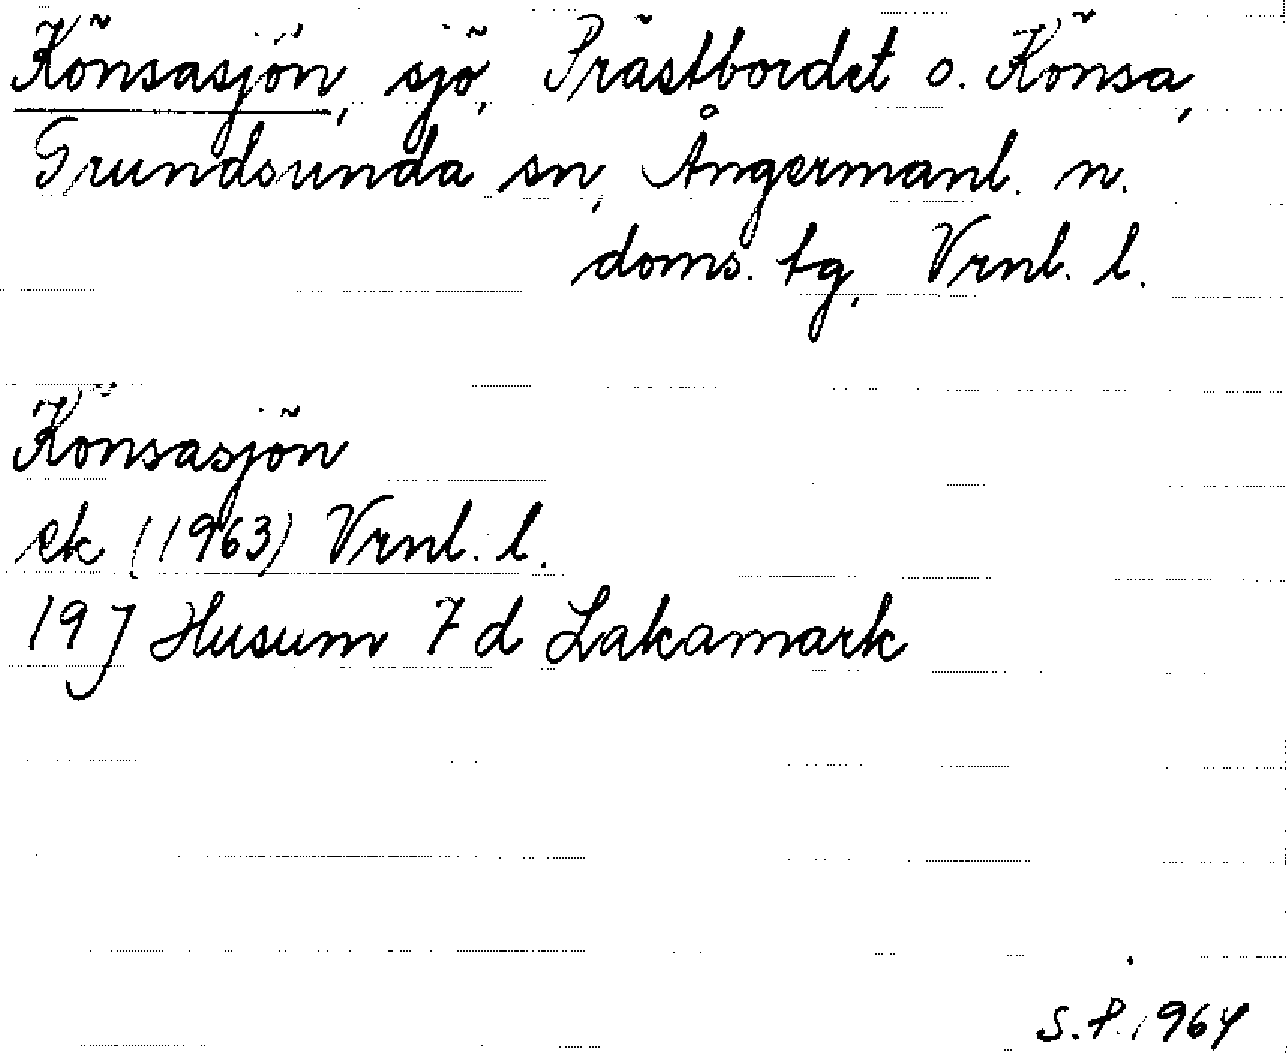 Könsasjön, sjö, Prästbordet o. Könsa,
Grundsunda sn, Ångermanl. n.
doms. tg, Vrnl. l.
Könsasjön
ek (1963) Vrnl. l.
19 J Husum 7 d Lakamark
S.P. 1964